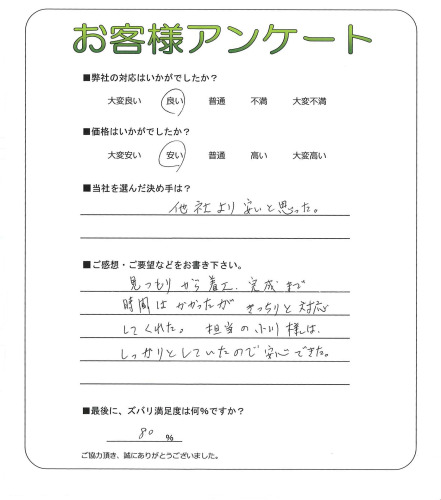 お客様アンケート
■弊社の対応はいかがでしたか？
大変良い 良い 普通 不満 大変不満
■価格はいかがでしたか？
大変安い 安い 普通 高い 大変高い
■当社を選んだ決め手は？
他社より安いと思った。
■ご感想・ご要望などをお書き下さい。
見つもりから着工、完成まで
時間はかかったがきっちりと対応
してくれた。担当の小川様は、
しっかりとしていたので安心できた。
■最後に、ズバリ満足度は何％ですか？
80 ％
ご協力頂き、誠にありがとうございました。